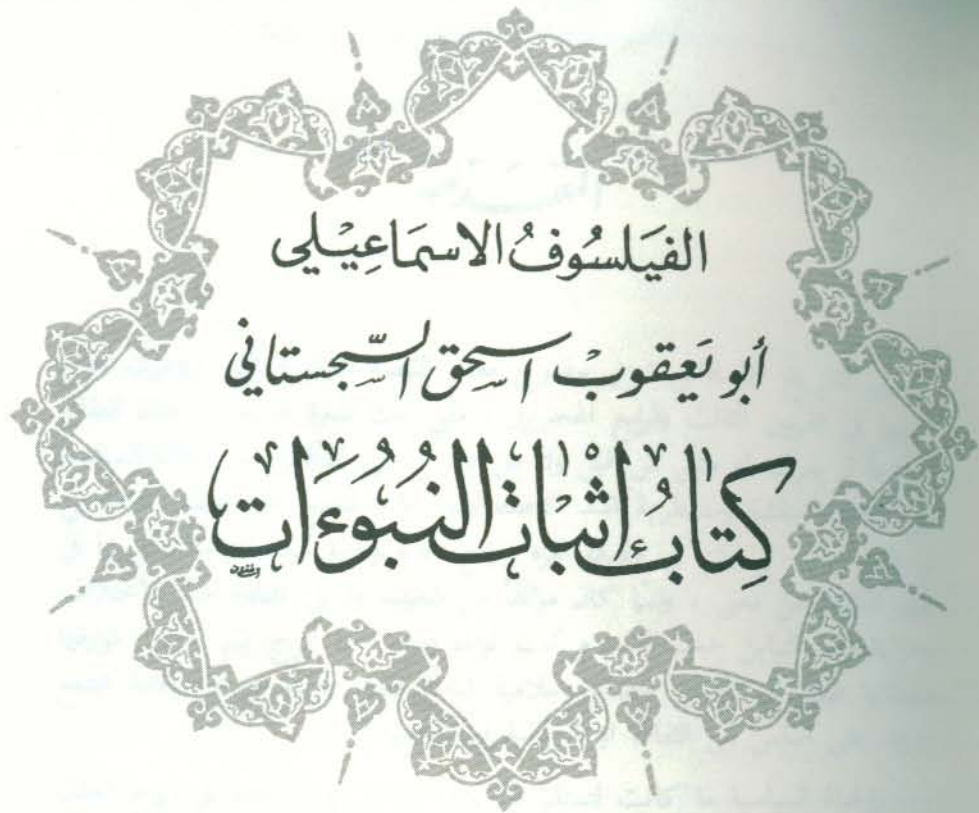 الفيَلسُوفُ الاسمَاعِيْلي
أبو يَعقوبْ اسحق السّجستاني
كِتابُ إثْبات النُبُوءَات